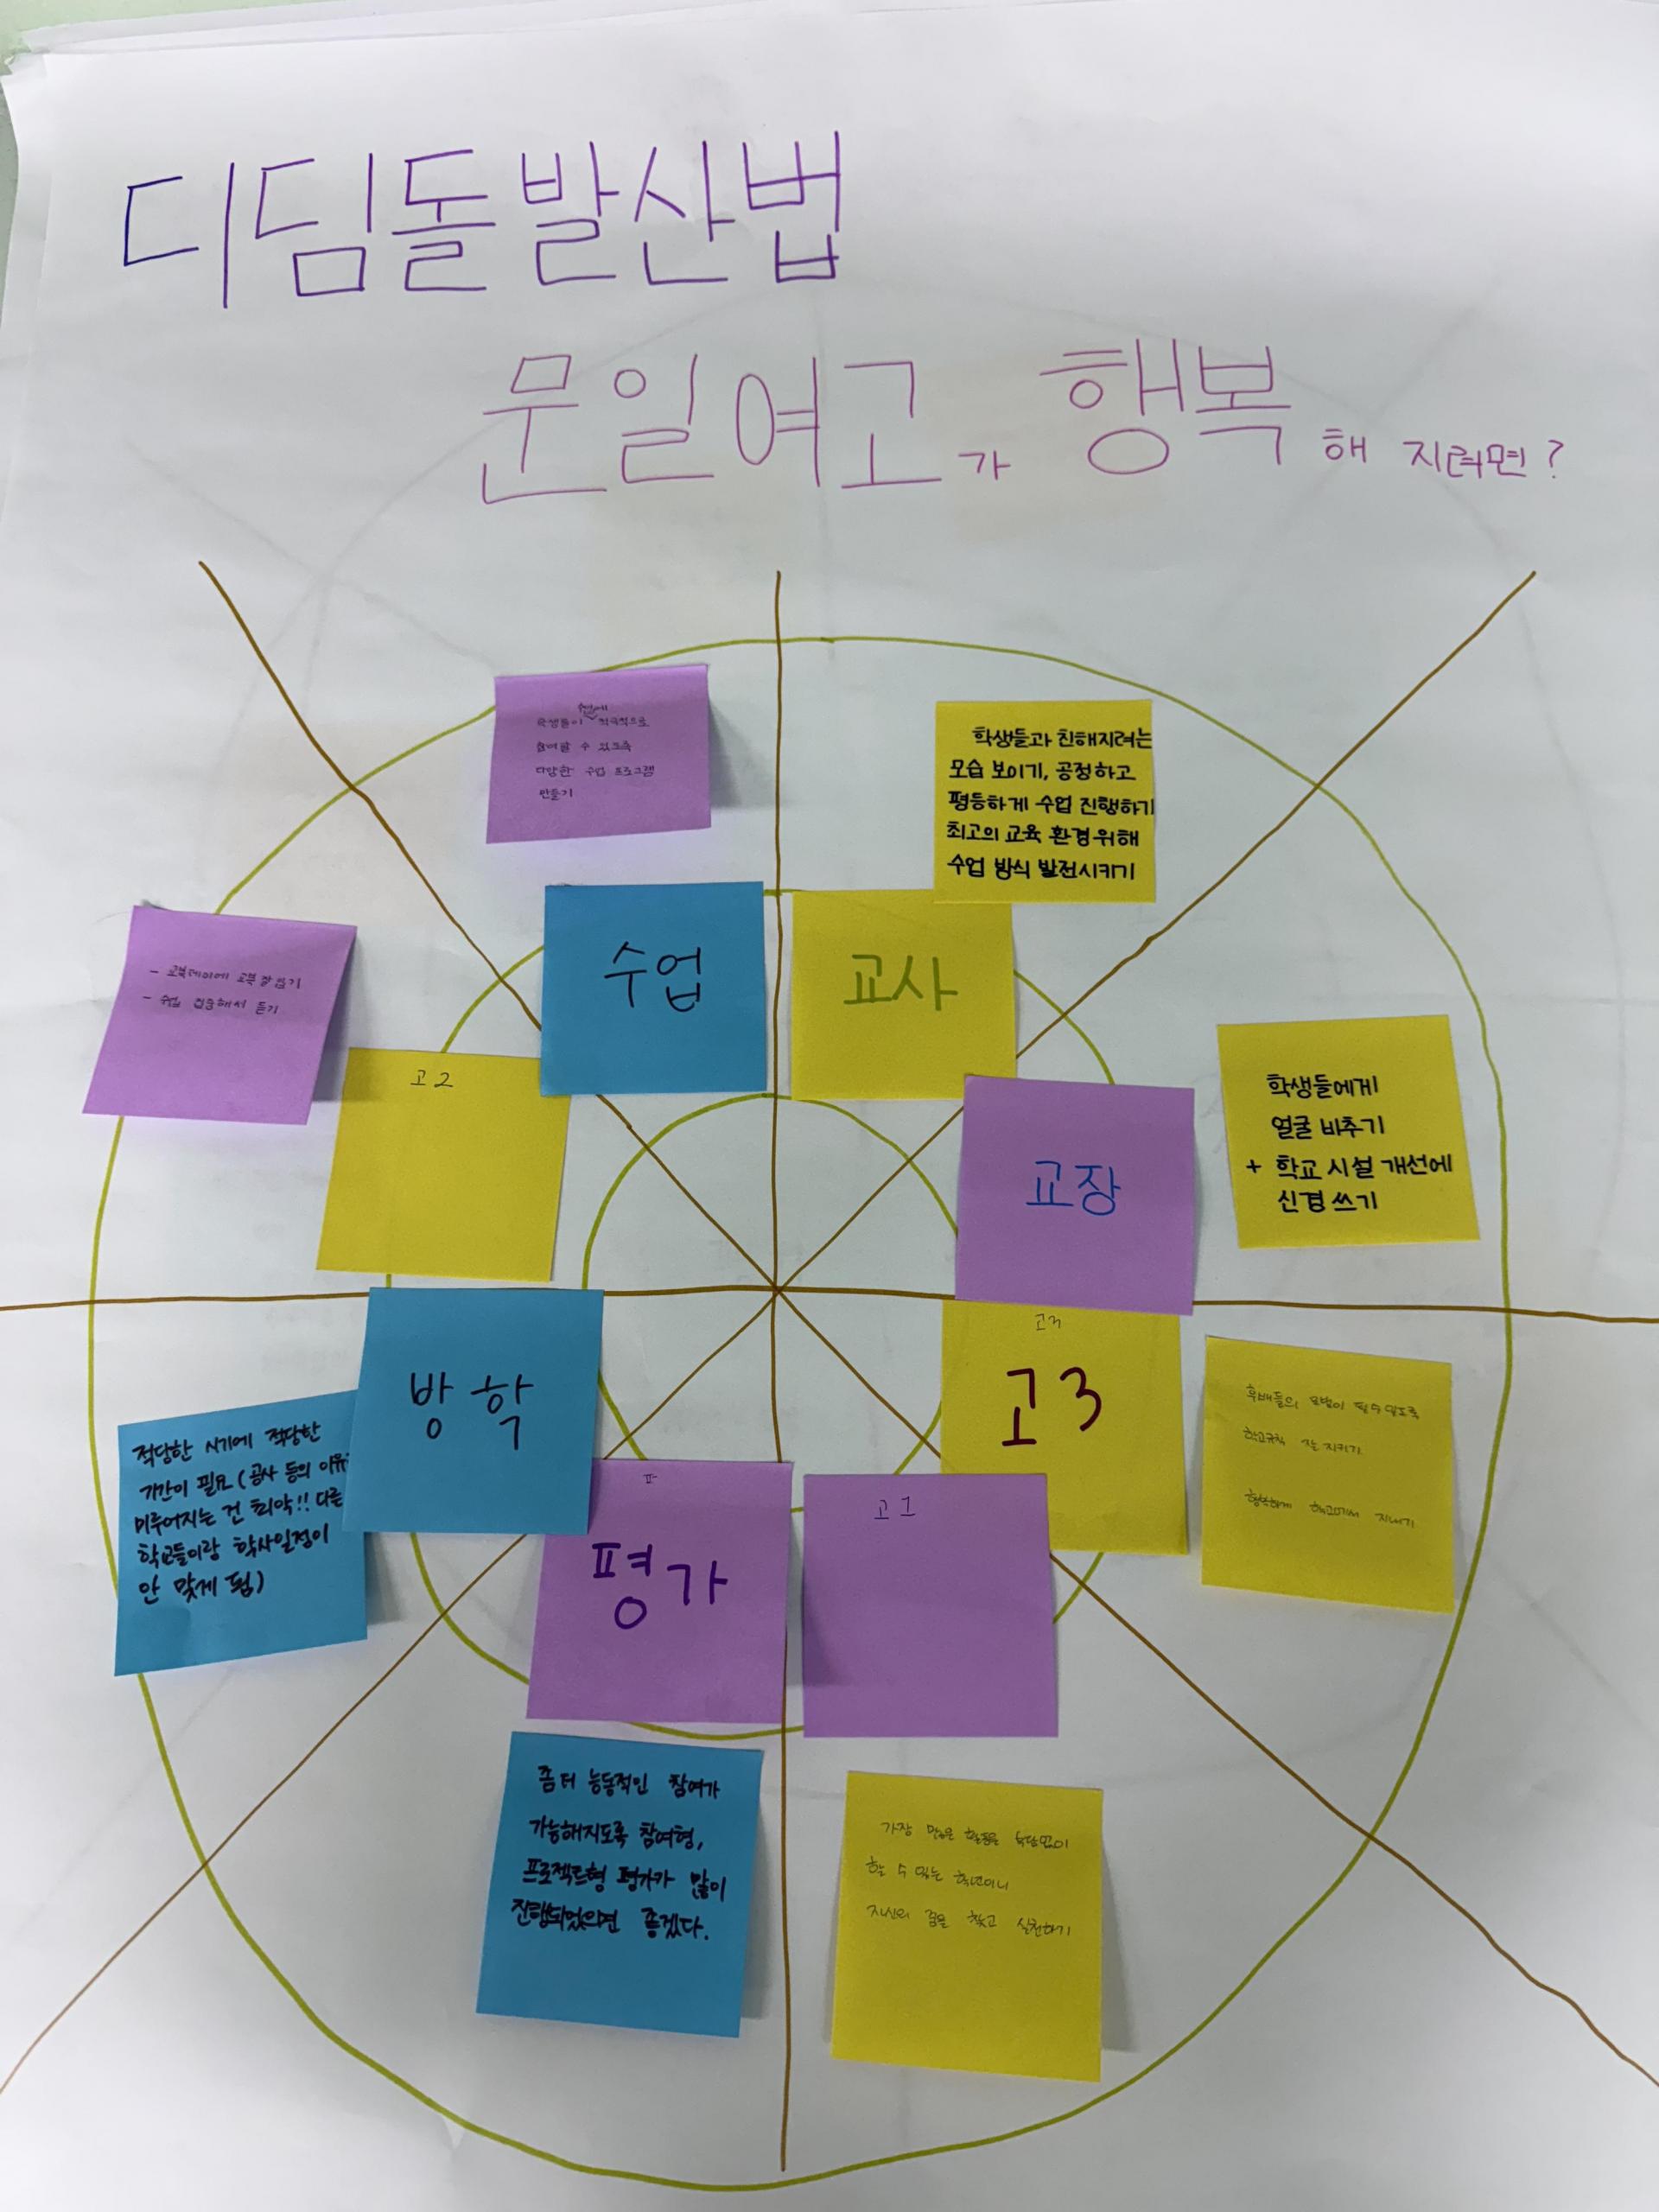 디딤돌발산법
문일여고가 행복해 지려면?
수업에
학생들이 적극적으로
참여할 수 있도록
다양한 수업 프로그램
만들기
학생들과 친해지려는
모습 보이기, 공정하고
평등하게 수업 진행하기
최고의 교육 환경위해
수업 방식 발전시키기
수업
교사
- 교복데이에 교복 잘 입기
- 수업 집중해서 듣기
고2
교장
학생들에게
얼굴 비추기
+ 학교 시설 개선에
신경 쓰기
방학
고3
고3
후배들의 모범이 될 수 있도록
학교규칙 잘 지키기
행복하게 학교에서 지내기
적당한 시기에 적당한
기간이 필요 (공사 등의 이유로
미루어지는 건 최악!! 다른
학교들이랑 학사일정이
안 맞게 됨)
평가
고1
좀 더 능동적인 참여가
가능해지도록 참여형,
프로젝트형 평가가 많이
진행되었으면 좋겠다.
가장 많은 활동을 부담없이
할 수 있는 학년이니
자신의 꿈을 찾고 실천하기